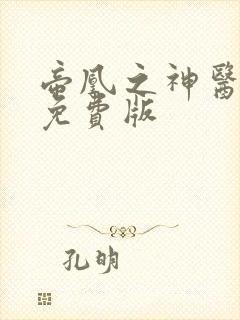 帝凰之神醫
免費版
孔明